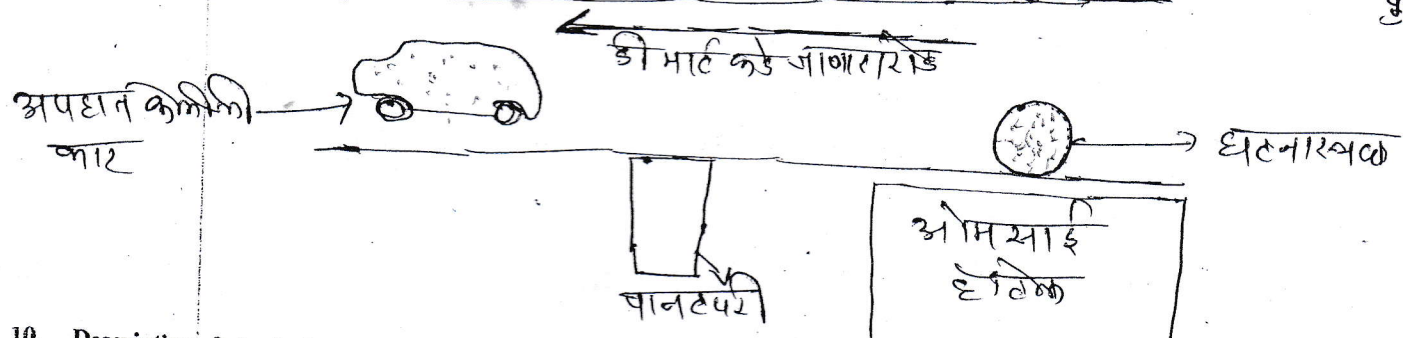 डी मार्ट कडे जाणारा रोड
अपघात केलेली
कार
घटनास्थळ
ओम साई
हॉटेल
पानटपरी
10